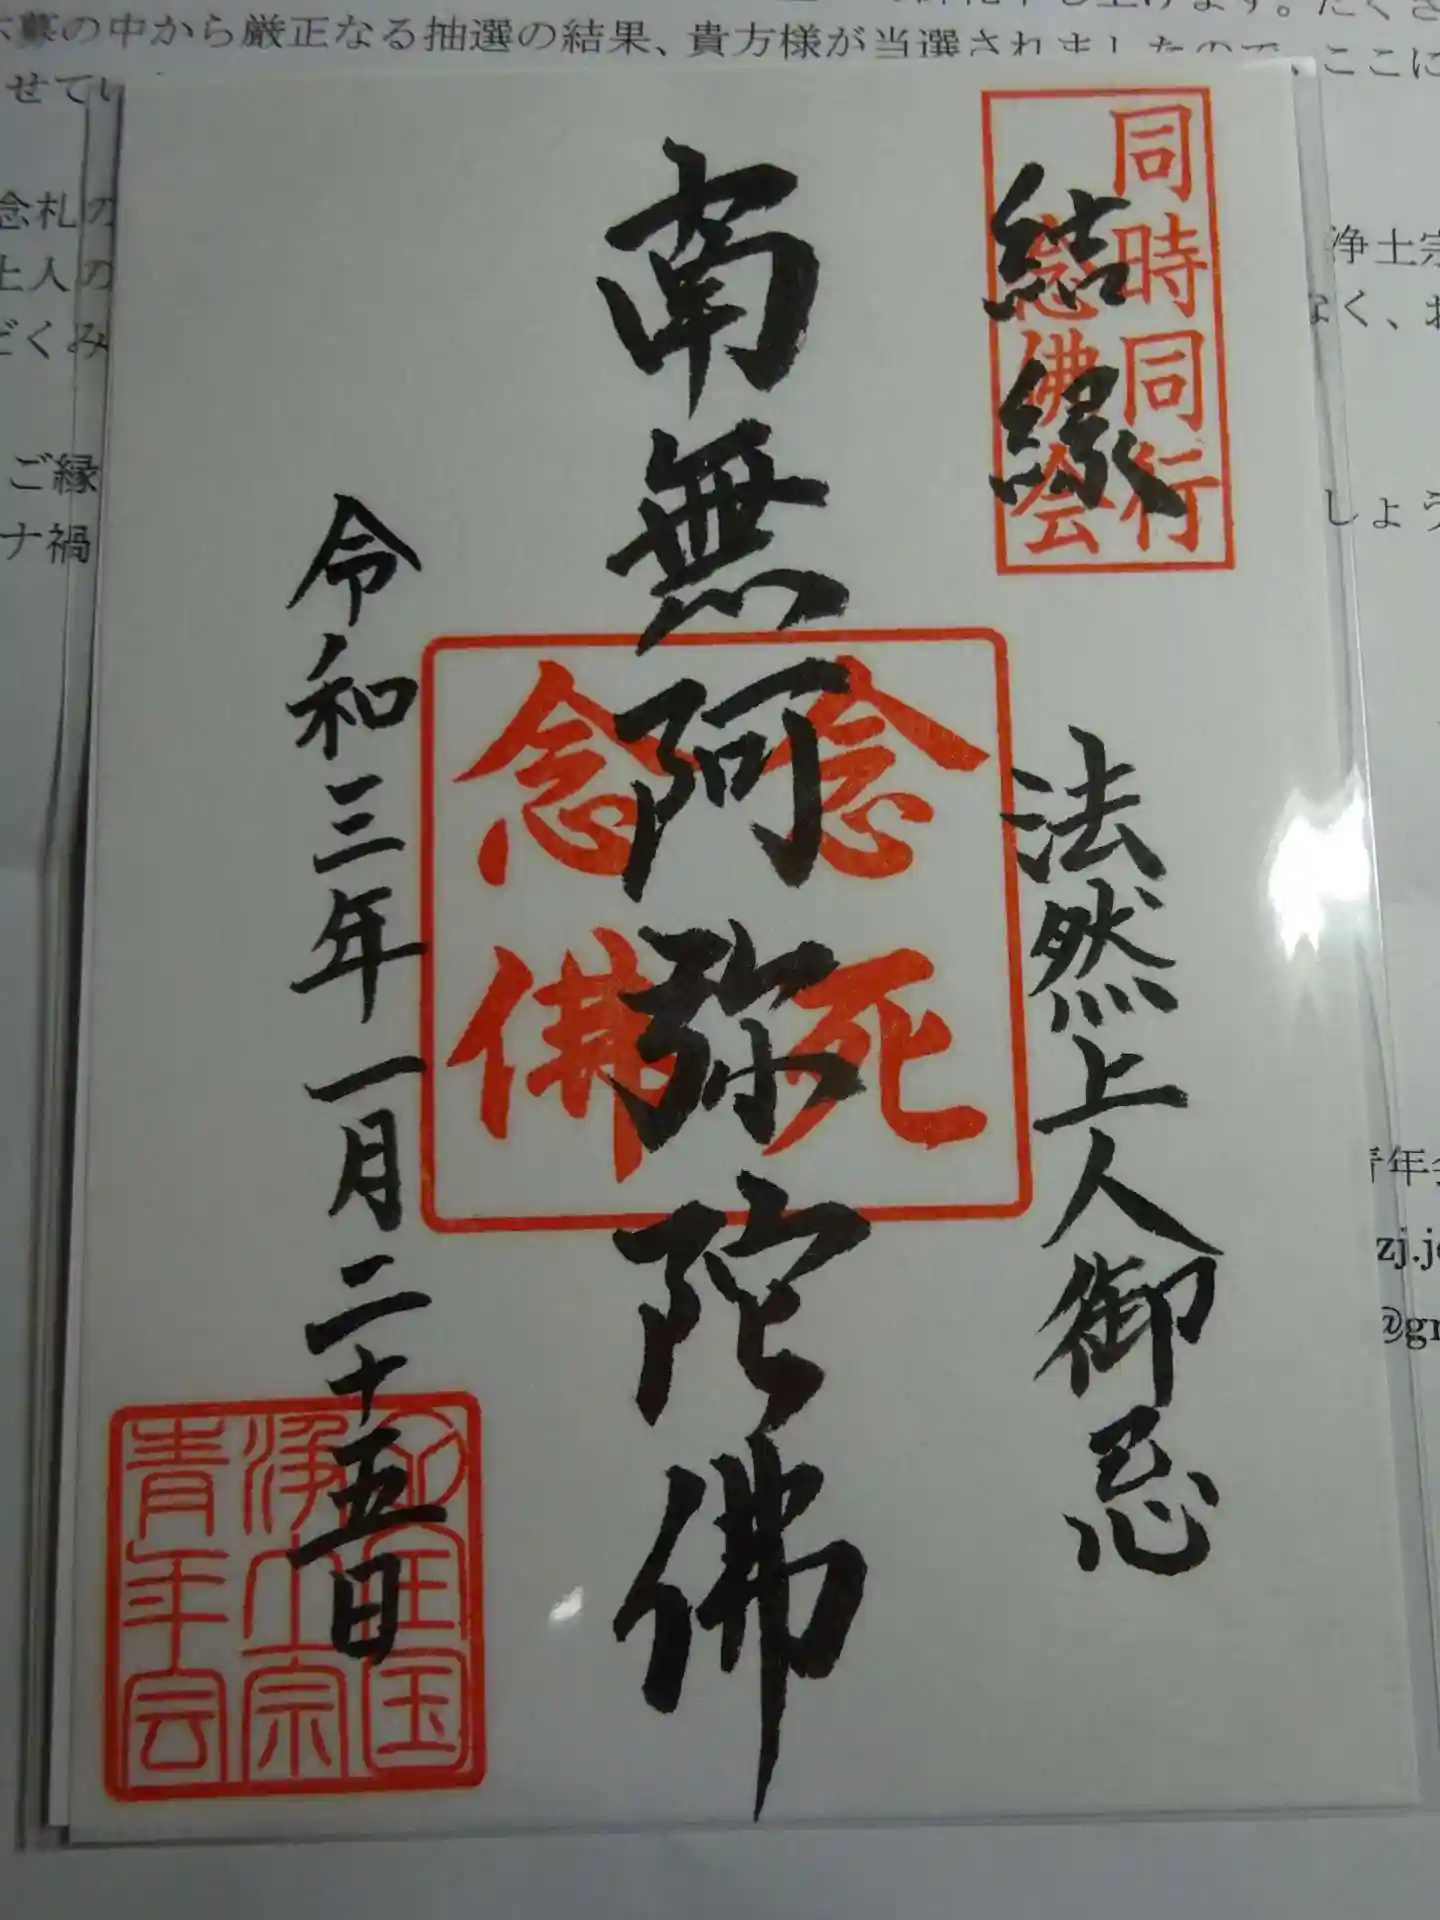 応募の中から厳正なる抽選の結果、貴方様が当選されましたので、ここに
せてい
念札の
浄土宗
上人の
なく、お
だくみ
ご縁
しょう
ナ禍
青年会
zj.jo
同時同行
念佛会
結縁
法然上人御忌
南無阿弥陀佛
念死
念佛
令和三年一月二十五日
全国
浄土宗
青年会